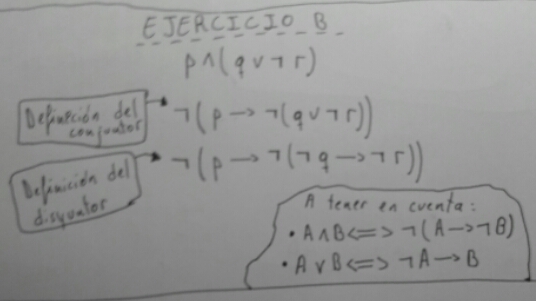 EJERCICIO B
p ∧ (q ∨ ¬ r)
Definición del conjuntor
¬ (p → ¬ (q ∨ ¬ r))
Definición del disyuntor
¬ (p → ¬ (¬ q → ¬ r))
A tener en cuenta:
• A ∧ B <=> ¬ (A → ¬ B)
• A ∨ B <=> ¬ A → B